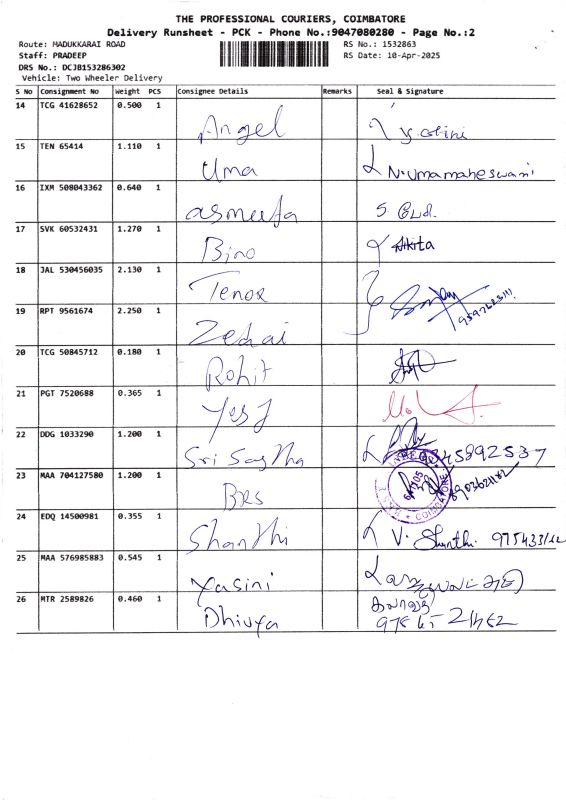 THE PROFESSIONAL COURIERS, COIMBATORE
Delivery Runsheet - PCK - Phone No.:9047080280 - Page No.:2
Route: MADUKKARAI ROAD RS No.: 1532863
Staff: PRADEEP RS Date: 10-Apr-2025
DRS No.: DCJB153286302
Vehicle: Two Wheeler Delivery
S No Consignment No Weight PCS Consignee Details Remarks Seal & Signature
14 TCG 41628652 0.500 1 Angel
15 TEN 65414 1.110 1 Uma N. Umamaheswari
16 IXM 508043362 0.640 1 asmeeta
17 SVK 60532431 1.270 1 Bino Nikita
18 JAL 530456035 2.130 1 Tenox
19 RPT 9561674 2.250 1
20 TCG 50845712 0.180 1 Rohit
21 PGT 7520688 0.365 1
22 DDG 1033290 1.200 1 Sri
23 MAA 704127580 1.200 1 BRS COIMBATORE
24 EDQ 14500981 0.355 1 Shanthi V. Shanthi
25 MAA 576985883 0.545 1 Yasini
26 MTR 2589826 0.460 1 Dhivya